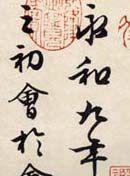 永和九年
之初會於會